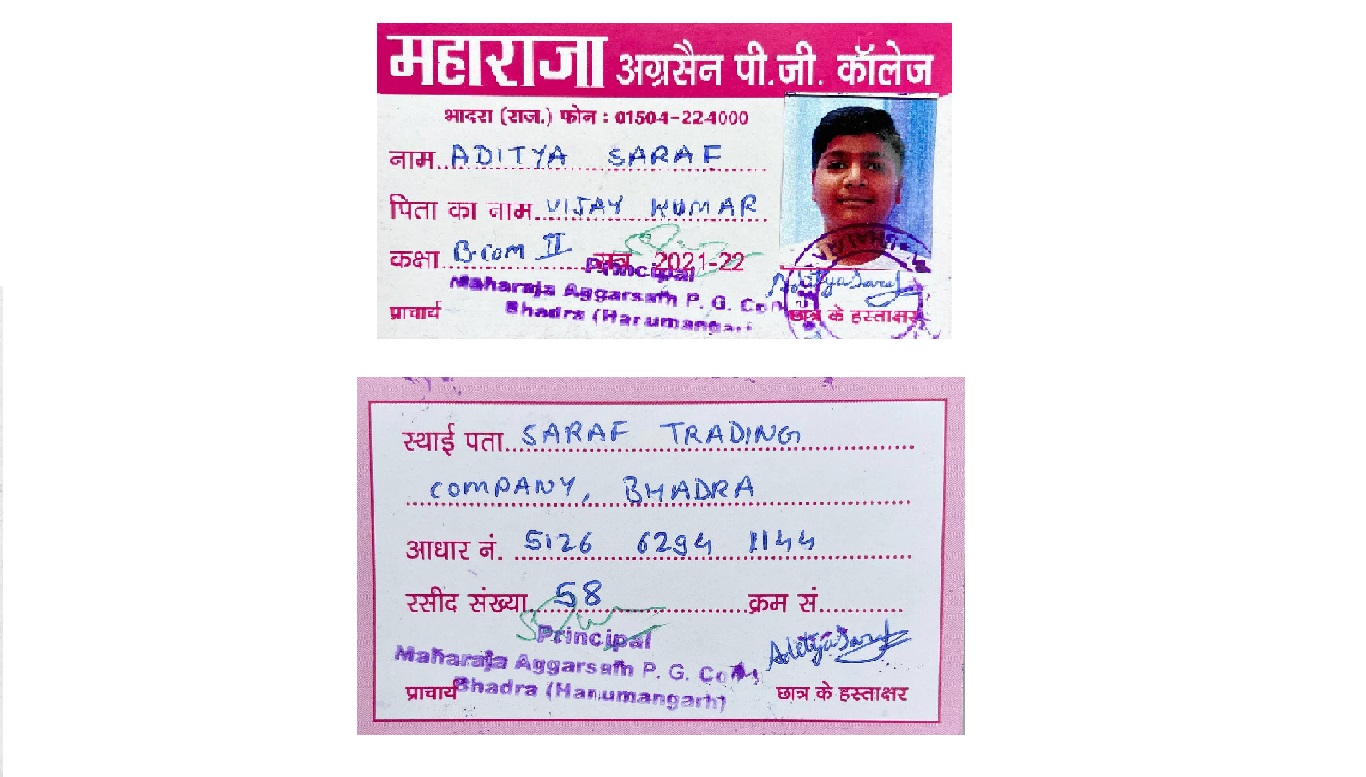 महाराजा अग्रसैन पी.जी. कॉलेज
भादरा (राज.) फोन : 01504-224000
नाम ADITYA SARAF
पिता का नाम VIJAY KUMAR
कक्षा B.com II सत्र 2021-22
Principal
Maharaja Aggarsain P. G.
Bhadra (Hanumangarh)
Aditya Saraf
प्राचार्य छात्र के हस्ताक्षर
स्थाई पता SARAF TRADING
COMPANY, BHADRA
आधार नं. 5126 6294 1144
रसीद संख्या 58 क्रम सं.
Principal
Maharaja Aggarsain P. G.
Bhadra (Hanumangarh)
Aditya Saraf
प्राचार्य छात्र के हस्ताक्षर